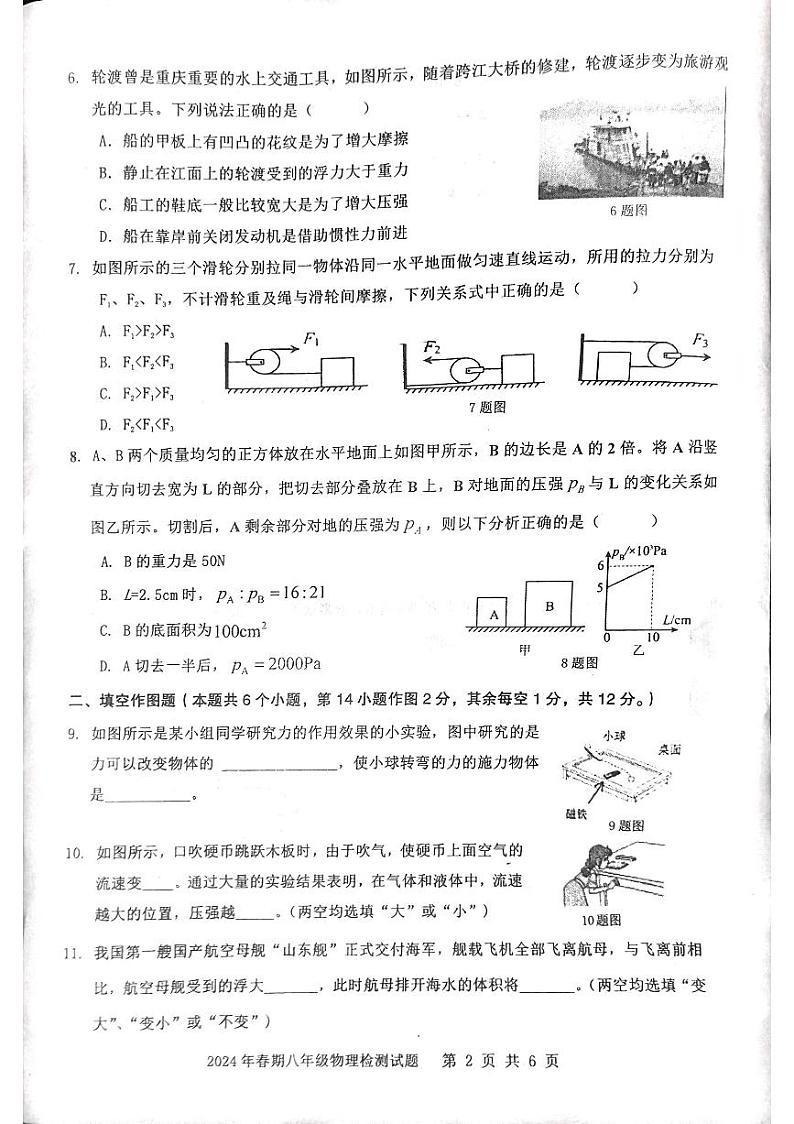 6. 轮渡曾是重庆重要的水上交通工具，如图所示，随着跨江大桥的修建，轮渡逐步变为旅游观
光的工具。下列说法正确的是（　　）
A. 船的甲板上有凹凸的花纹是为了增大摩擦
B. 静止在江面上的轮渡受到的浮力大于重力
C. 船工的鞋底一般比较宽大是为了增大压强
D. 船在靠岸前关闭发动机是借助惯性力前进
6题图
7. 如图所示的三个滑轮分别拉同一物体沿同一水平地面做匀速直线运动，所用的拉力分别为
F₁、F₂、F₃，不计滑轮重及绳与滑轮间摩擦，下列关系式中正确的是（　　）
A. F₁>F₂>F₃
B. F₁<F₂<F₃
C. F₂>F₁>F₃
D. F₂<F₁<F₃
F₁
F₂
F₃
7题图
8. A、B 两个质量均匀的正方体放在水平地面上如图甲所示，B 的边长是 A 的 2 倍。将 A 沿竖
直方向切去宽为 L 的部分，把切去部分叠放在 B 上，B 对地面的压强 p_B 与 L 的变化关系如
图乙所示。切割后，A 剩余部分对地的压强为 p_A，则以下分析正确的是（　　）
A. B 的重力是 50N
B. L=2.5cm 时，p_A : p_B = 16:21
C. B 的底面积为100cm²
D. A 切去一半后，p_A = 2000Pa
A
B
甲
p_B/×10³Pa
6
5
0
10
L/cm
乙
8题图
二、填空作图题（本题共 6 个小题，第 14 小题作图 2 分，其余每空 1 分，共 12 分。）
9. 如图所示是某小组同学研究力的作用效果的小实验，图中研究的是
力可以改变物体的 ____________，使小球转弯的力的施力物体
是__________。
小球
桌面
磁铁
9题图
10. 如图所示，口吹硬币跳跃木板时，由于吹气，使硬币上面空气的
流速变____。通过大量的实验结果表明，在气体和液体中，流速
越大的位置，压强越_____。（两空均选填“大”或“小”）
10题图
11. 我国第一艘国产航空母舰“山东舰”正式交付海军，舰载飞机全部飞离航母，与飞离前相
比，航空母舰受到的浮大______，此时航母排开海水的体积将______。（两空均选填“变
大”、“变小”或“不变”）
2024 年春期八年级物理检测试题　第 2 页 共 6 页